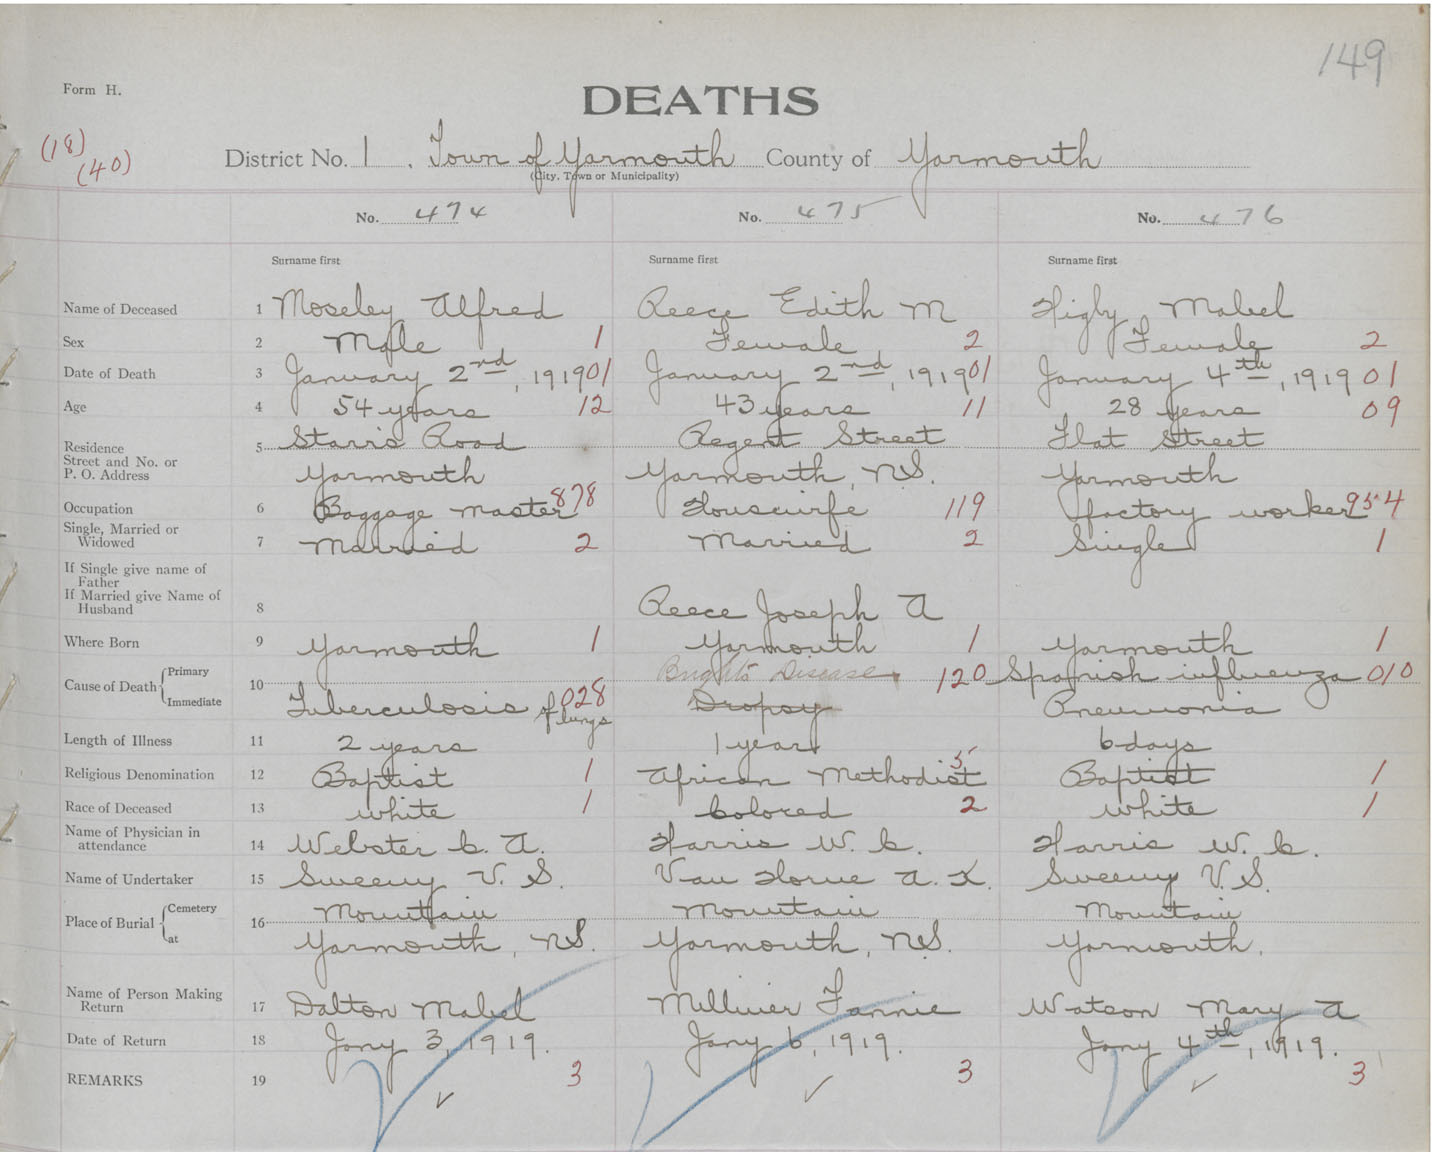 149
Form H.
DEATHS
(18)
(40)
District No. 1. Town of Yarmouth County of Yarmouth
(City, Town or Municipality)
No. 474 No. 475 No. 476
Surname first Surname first Surname first
Name of Deceased 1 Moseley Alfred Reece Edith M Higby Mabel
Sex 2 Male 1 Female 2 Female 2
Date of Death 3 January 2nd, 1919 01 January 2nd, 1919 01 January 4th, 1919 01
Age 4 54 years 12 43 years 11 28 years 09
Residence 5 Starrs Road Regent Street Flat Street
Street and No. or
P. O. Address Yarmouth Yarmouth, N.S. Yarmouth
Occupation 6 Baggage master 878 Housewife 119 factory worker 954
Single, Married or
Widowed 7 Married 2 Married 2 Single 1
If Single give name of
Father
If Married give Name of
Husband 8 Reece Joseph A
Where Born 9 Yarmouth 1 Yarmouth 1 Yarmouth 1
Cause of Death { Primary 10 Brights Disease 120 Spanish influenza 010
Immediate Tuberculosis of lungs 028 Dropsy Pneumonia
Length of Illness 11 2 years 1 year 6 days
Religious Denomination 12 Baptist 1 African Methodist 5 Baptist 1
Race of Deceased 13 white 1 colored 2 white 1
Name of Physician in
attendance 14 Webster C. A. Harris W. C. Harris W. C.
Name of Undertaker 15 Sweeny V. S. Van Horne A. K. Sweeny V.S.
Place of Burial { Cemetery 16 Mountain Mountain Mountain
at Yarmouth, N.S. Yarmouth, N.S. Yarmouth.
Name of Person Making
Return 17 Dalton Mabel Fannie Watson Mary A
Date of Return 18 Jany 3, 1919. Jany 6, 1919. Jany 4th, 1919.
REMARKS 19 3 3 3